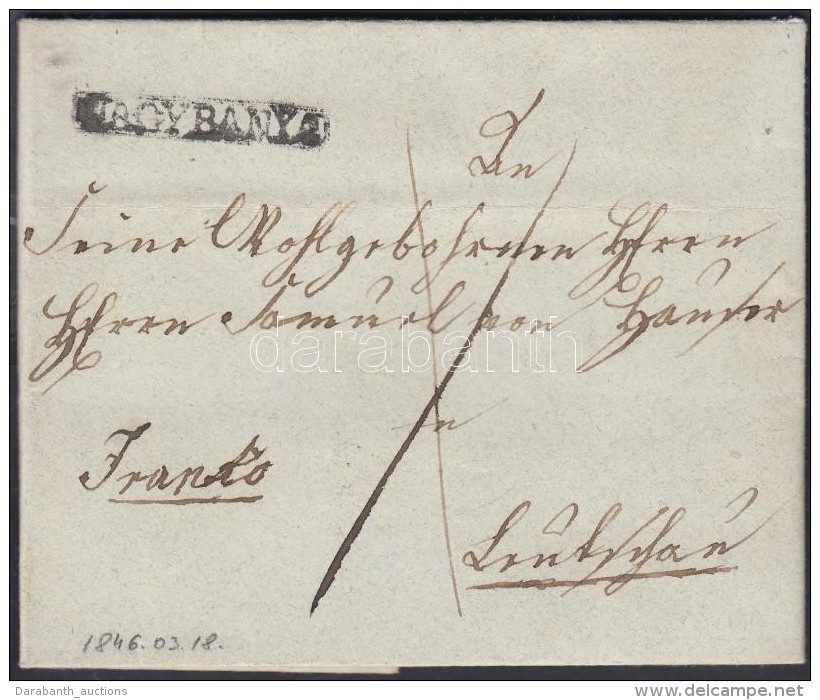 NAGYBANYA
An
Seine Wohlgebohrnen Herrn
Herrn Samuel von Hauser
darabanth
in
Franko
Leutschau
1846.03.18.
Darabanth_auctions
www.delcampe.net